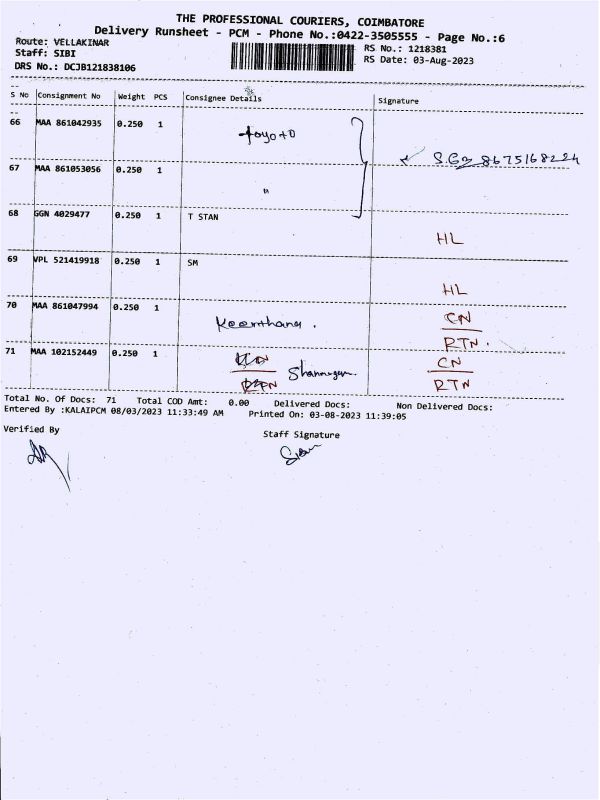 THE PROFESSIONAL COURIERS, COIMBATORE
Delivery Runsheet - PCM - Phone No.:0422-3505555 - Page No.:6
Route: VELLAKINAR
RS No.: 1218381
Staff: SIBI
RS Date: 03-Aug-2023
DRS No.: DCJB121838106
S No Consignment No Weight PCS Consignee Details Signature
66 MAA 861042935 0.250 1 toyoto
8675168224
67 MAA 861053056 0.250 1 "
68 GGN 4029477 0.250 1 T STAN
HL
69 VPL 521419918 0.250 1 SM
HL
70 MAA 861047994 0.250 1 Keerthana . CN
RTN.
71 MAA 102152449 0.250 1 Shanmugam CN
RTN
Total No. Of Docs: 71 Total COD Amt: 0.00 Delivered Docs: Non Delivered Docs:
Entered By :KALAIPCM 08/03/2023 11:33:49 AM Printed On: 03-08-2023 11:39:05
Verified By
Staff Signature